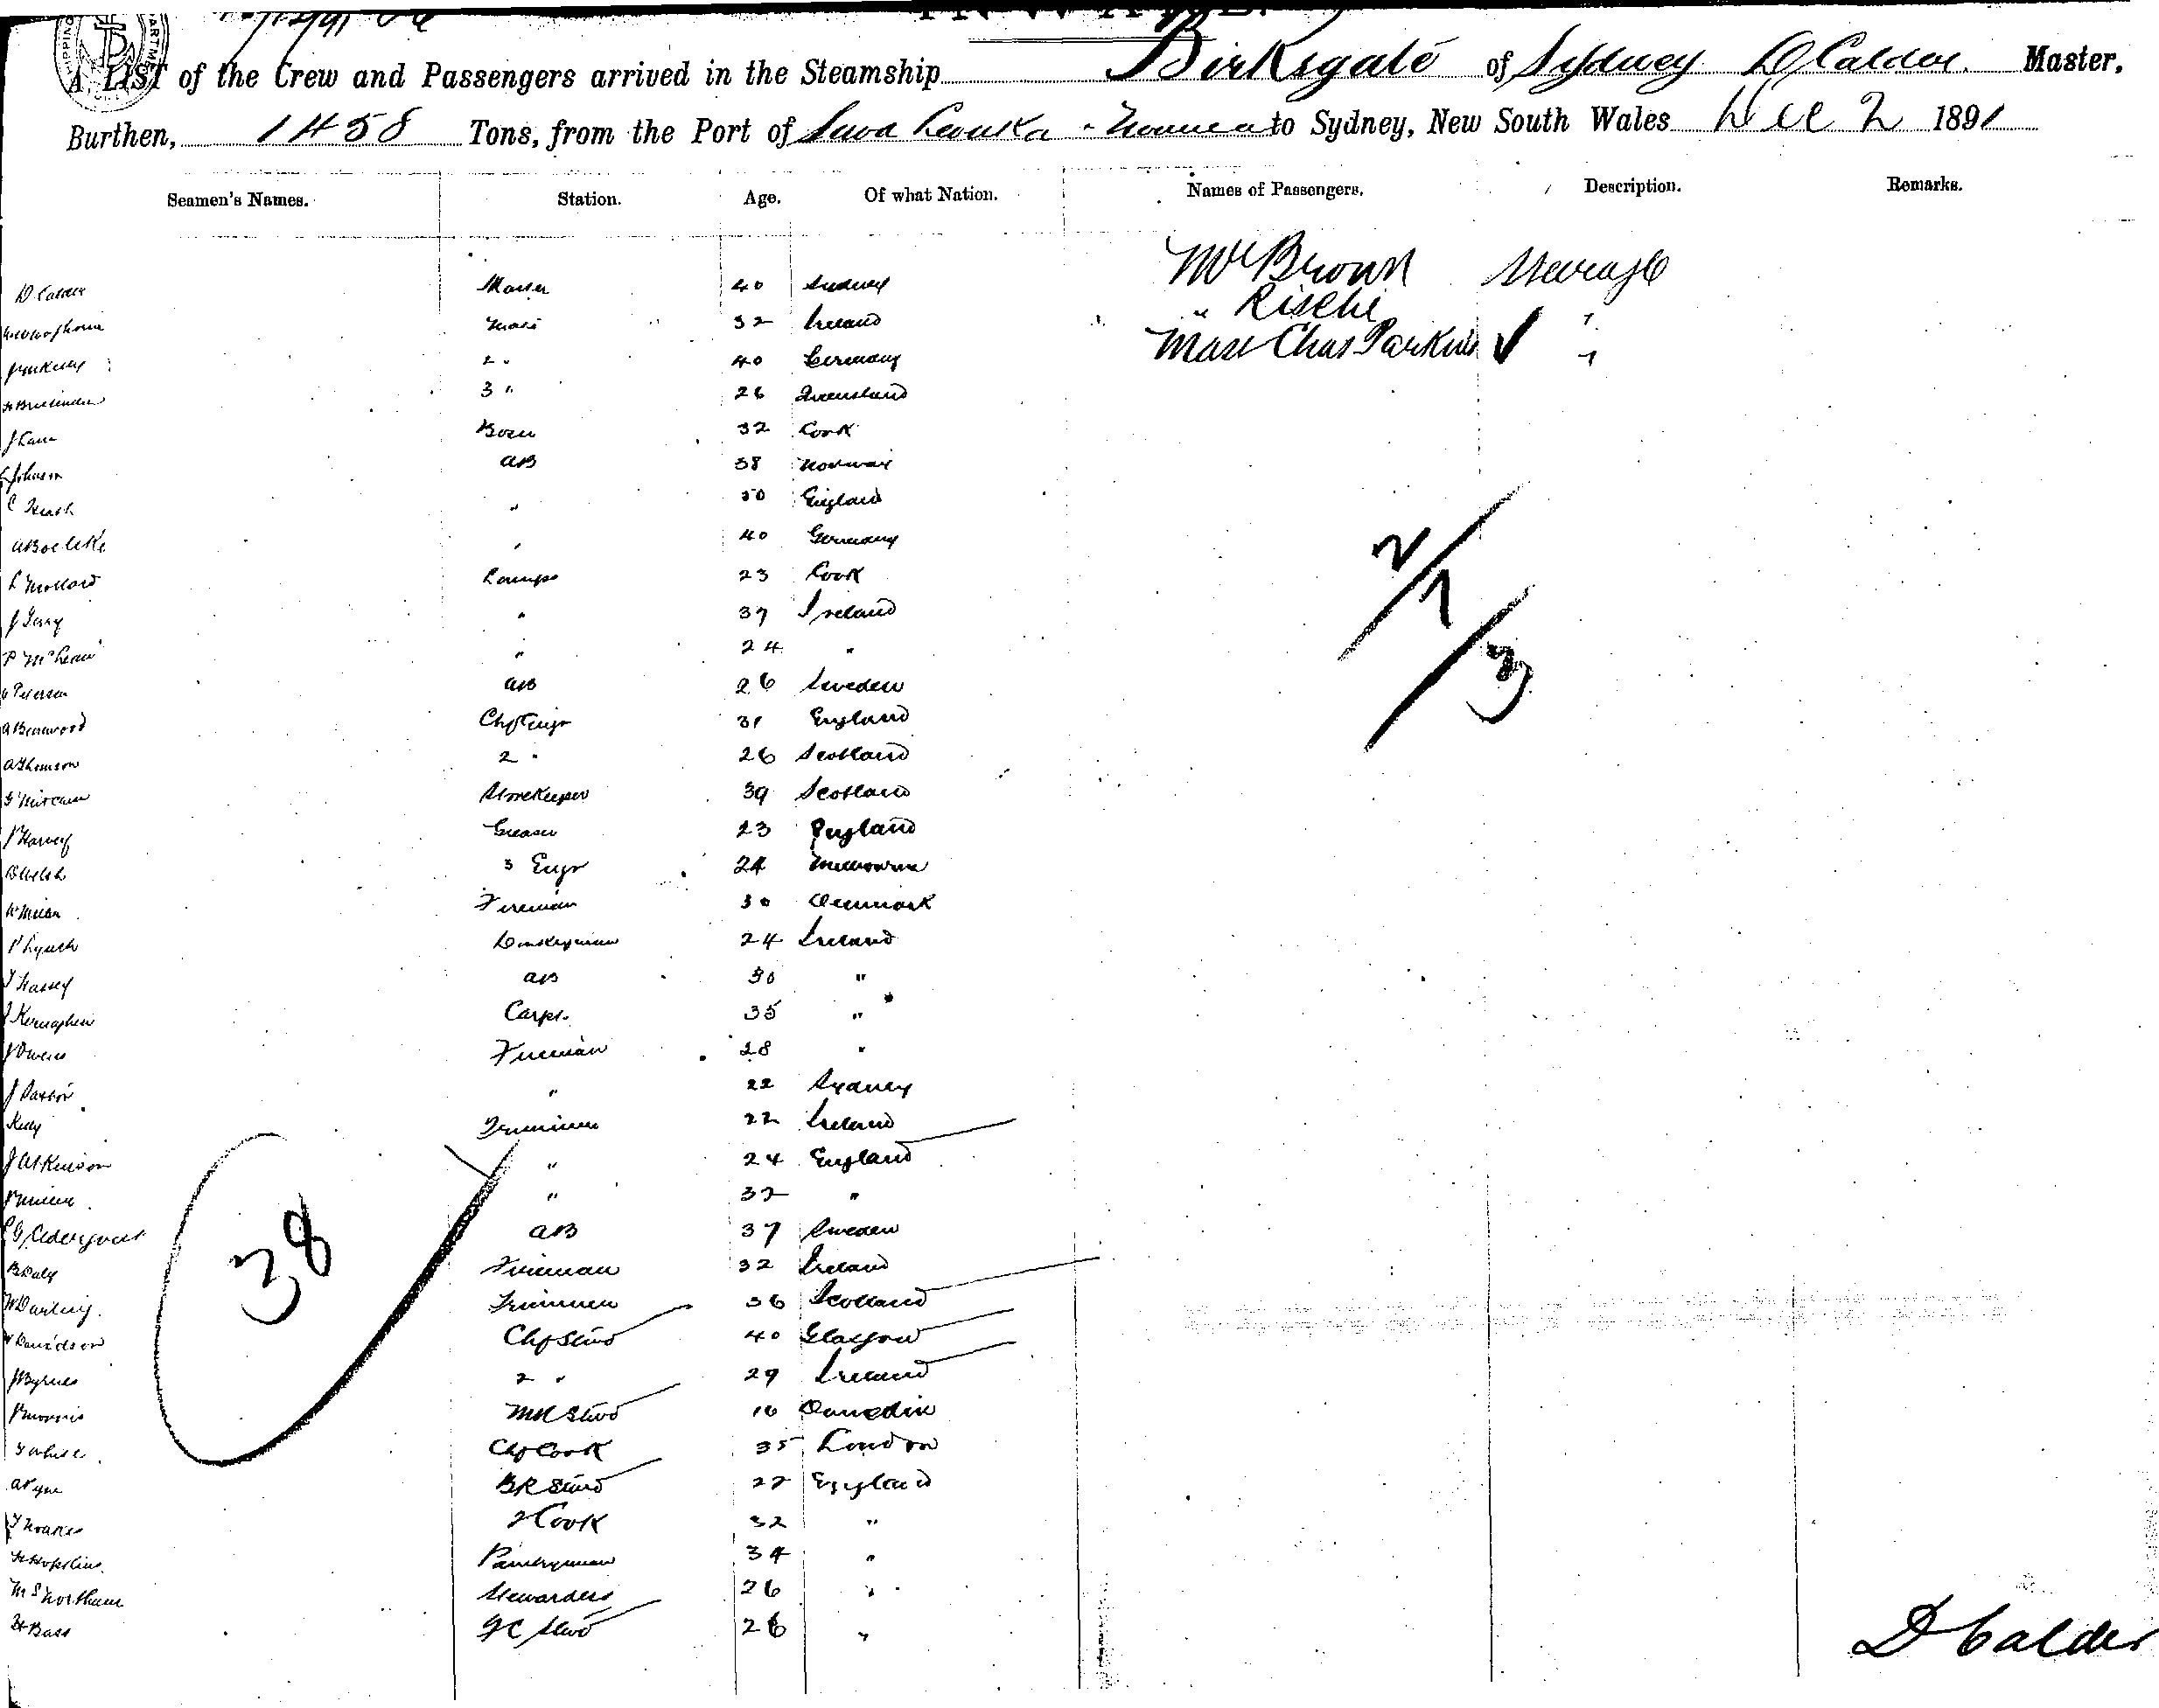 A LIST of the Crew and Passengers arrived in the Steamship Birksgate of Sydney D Calder Master,
Burthen, 1458 Tons, from the Port of Suva Levuka - Noumea to Sydney, New South Wales Dec 2 1891
Seamen's Names. Station. Age. Of what Nation. Names of Passengers. Description. Remarks.
D Calder Master 40 Sydney Mr Brown Steerage
Mate 32 Ireland " Rische "
2 " 40 Germany Mast Chas Parkin ✓ "
3 " 26 Queensland
J Cann Bosn 32 Cork
Johnson AB 38 Norway
C Heath " 50 England
A Boelcke " 40 Germany
L Mollard Lamps 23 Cook
J Terry " 37 Ireland
P McLean " 24 "
Peterson AB 26 Sweden
A Benwood Chf Engr 31 England
A Thomson 2 " 26 Scotland
Storekeeper 39 Scotland
J Harvey Greaser 23 England
B Welsh 3 Engr 24 Melbourne
Fireman 30 Denmark
P Lynch Donkeyman 24 Ireland
T Hassey AB 30 "
J Kernaghan Carpr. 35 "
J Owens Fireman 28 "
J Paxton " 22 Sydney
Kelly Trimmer 22 Ireland
J Atkinson " 24 England
" 32 "
C G Cedergvest AB 37 Sweden
B Daly Fireman 32 Ireland
W Darling. Trimmer 36 Scotland
W Davidson Chf Stwd 40 Glasgow
J Byrnes 2 " 29 Ireland
P Morris Stwd 16 Dunedin
White Chf Cook 35 London
A Pyne BR Stwd 22 England
T Noakes 2 Cook 32 "
H Hopkins Pantryman 34 "
M S Northam Stewardess 26 "
H Bass FC Stwd 26 "
2/1/3
38
D Calder